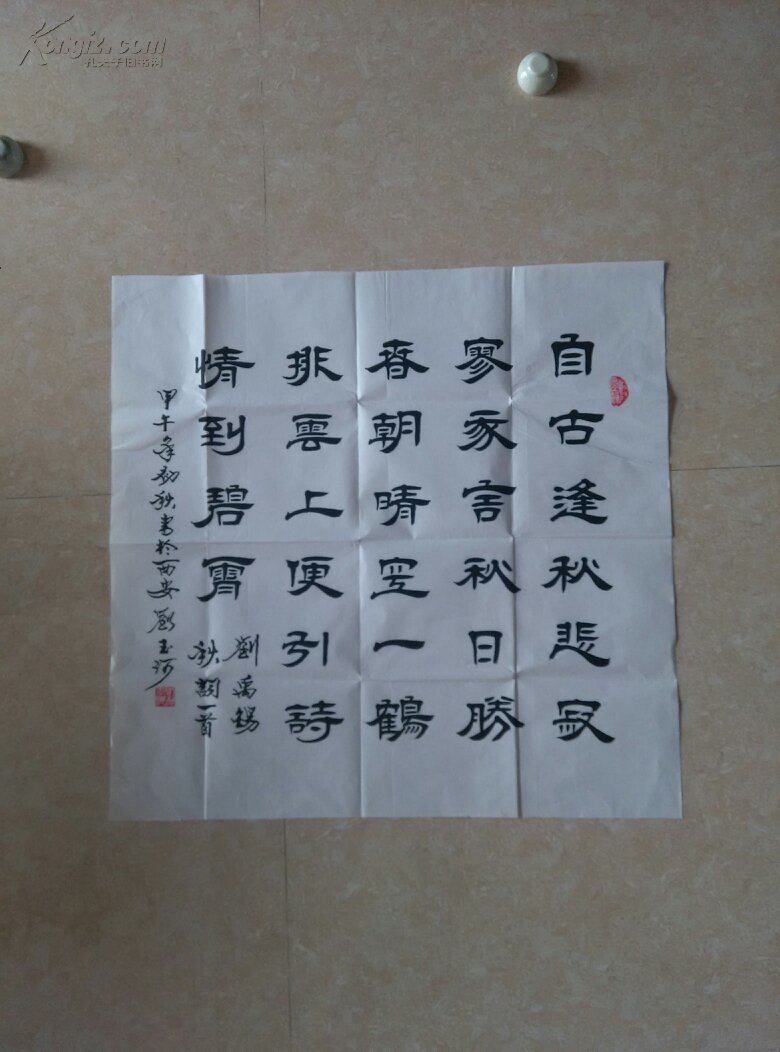 自古逢秋悲寂
寥我言秋日勝
春朝晴空一鶴
排雲上便引詩
情到碧霄
劉禹錫
秋詞一首
甲午年初秋書於西安劉玉河
Kongfz.com
孔夫子旧书网